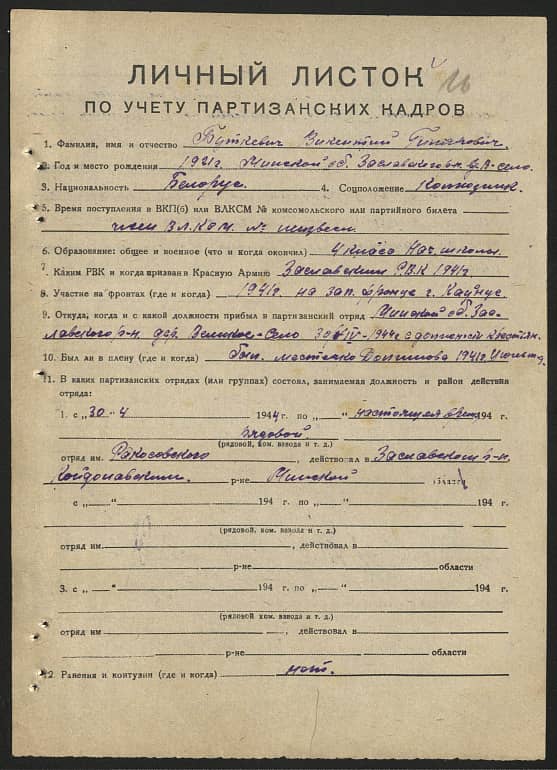 ЛИЧНЫЙ ЛИСТОК
ПО УЧЕТУ ПАРТИЗАНСКИХ КАДРОВ
1. Фамилия, имя и отчество Буткевич Викентий
2. Год и место рождения 1921 г. Минской об. Заславского
3. Национальность Белорус. 4. Соцположение Колхозник.
5. Время поступления в ВКП(б) или ВЛКСМ № комсомольского или партийного билета
член В.Л.К.С.М. №
6. Образование: общее и военное (что и когда окончил) 4 класса Нач. школы.
7. Каким РВК и когда призван в Красную Армию Заславским РВК 1941 г.
8. Участие на фронтах (где и когда) 1941 г. на зап. фронте г. Каунус
9. Откуда, и с какой должности прибыл в партизанский отряд Минской об. Зас-
лавского р-н. дер. Великое-Село
10. Был ли в плену (где и когда) был. местечко 1941 г.
11. В каких партизанских отрядах (или группах) состоял, занимаемая должность и район действия
отряда:
1. с „30 - 4 1944 г. по „ “ настоящее время 194 г.
Рядовой
(рядовой, ком. взвода и т. д.)
отряд им. , действовал в Заславском р-н.
Койдонавским. р-не Минской области
с „ “ 194 г. по „ “ 194 г.
(рядовой, ком. взвода и т. д.)
отряд им. , действовал в
р-не области
3. с „ “ 194 г. по „ “ 194 г.
(рядовой ком взвода и т. д.)
отряд им , действовал в
р-не области
12. Ранения и контузии (где и когда) нет.